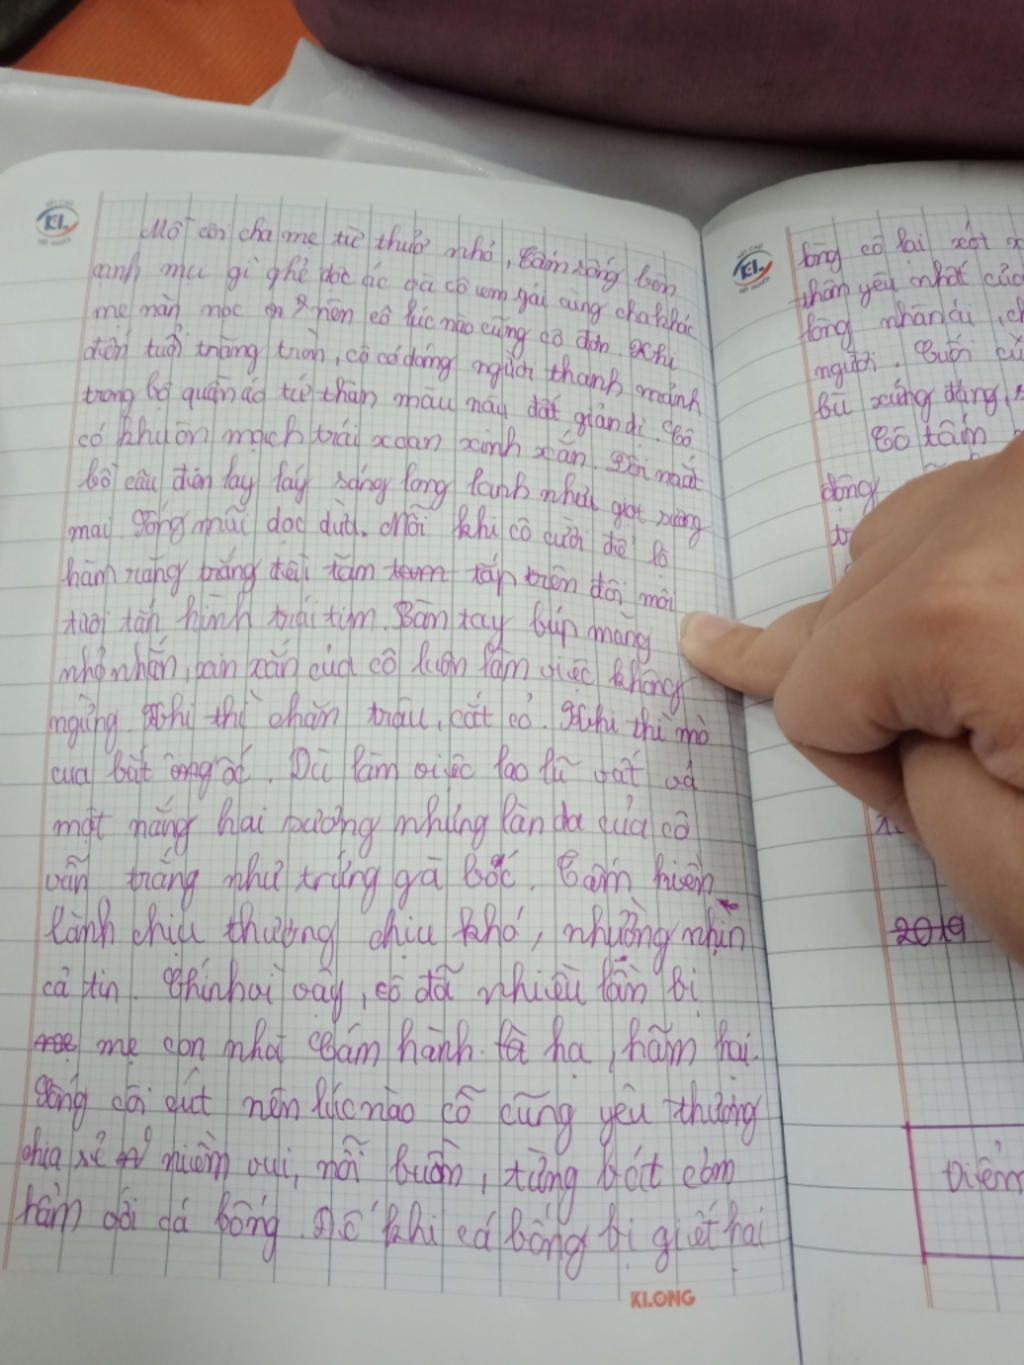 Mồ côi cha mẹ từ thuở nhỏ, Tấm sống bên
cạnh mụ gì ghẻ độc ác và cô em gái cùng cha khác
mẹ nên cô lúc nào cũng cô đơn. Khi
đến tuổi trăng tròn, cô có dáng người thanh mảnh
trong bộ quần áo tứ thân màu nâu đất giản di. Cô
có khuôn mặch trái xoan xinh xắn. Đôi mắt
bồ câu đen lay láy sáng long lanh như giọt sương
mai. Sống mũi dọc dừa. Mỗi khi cô cười để lộ
hàm răng trắng đều tăm tăm tắp trên đôi môi
tươi tắn hình trái tim. Bàn tay búp măng
nhỏ nhắn, xin xắn của cô luôn làm việc không
ngừng. Khi thì chăn trâu, cắt cỏ. Khi thì mò
cua bắt ong ốc. Dù làm việc lao lũ vất vả
một nắng hai sương nhưng làn da của cô
vẫn trắng như trứng gà bóc. Tấm hiền
lành chịu thương chịu khó, nhường nhịn
cả tin. Chính vì vậy, cô đã nhiều lần bị
mẹ con nhà Cám hành hạ, hãm hại.
Sống côi cút nên lúc nào cô cũng yêu thương
chia sẻ niềm vui, nỗi buồn, từng bát cơm
hẩm với cá bống. Để khi cá bống bị giết hại
KLONG
KL
KL
lòng cô lại xót x
thân yêu nhất của
lòng nhân ái, ch
người. Cuối cù
bù xứng đáng,
Cô tấm
động
2019
Điểm